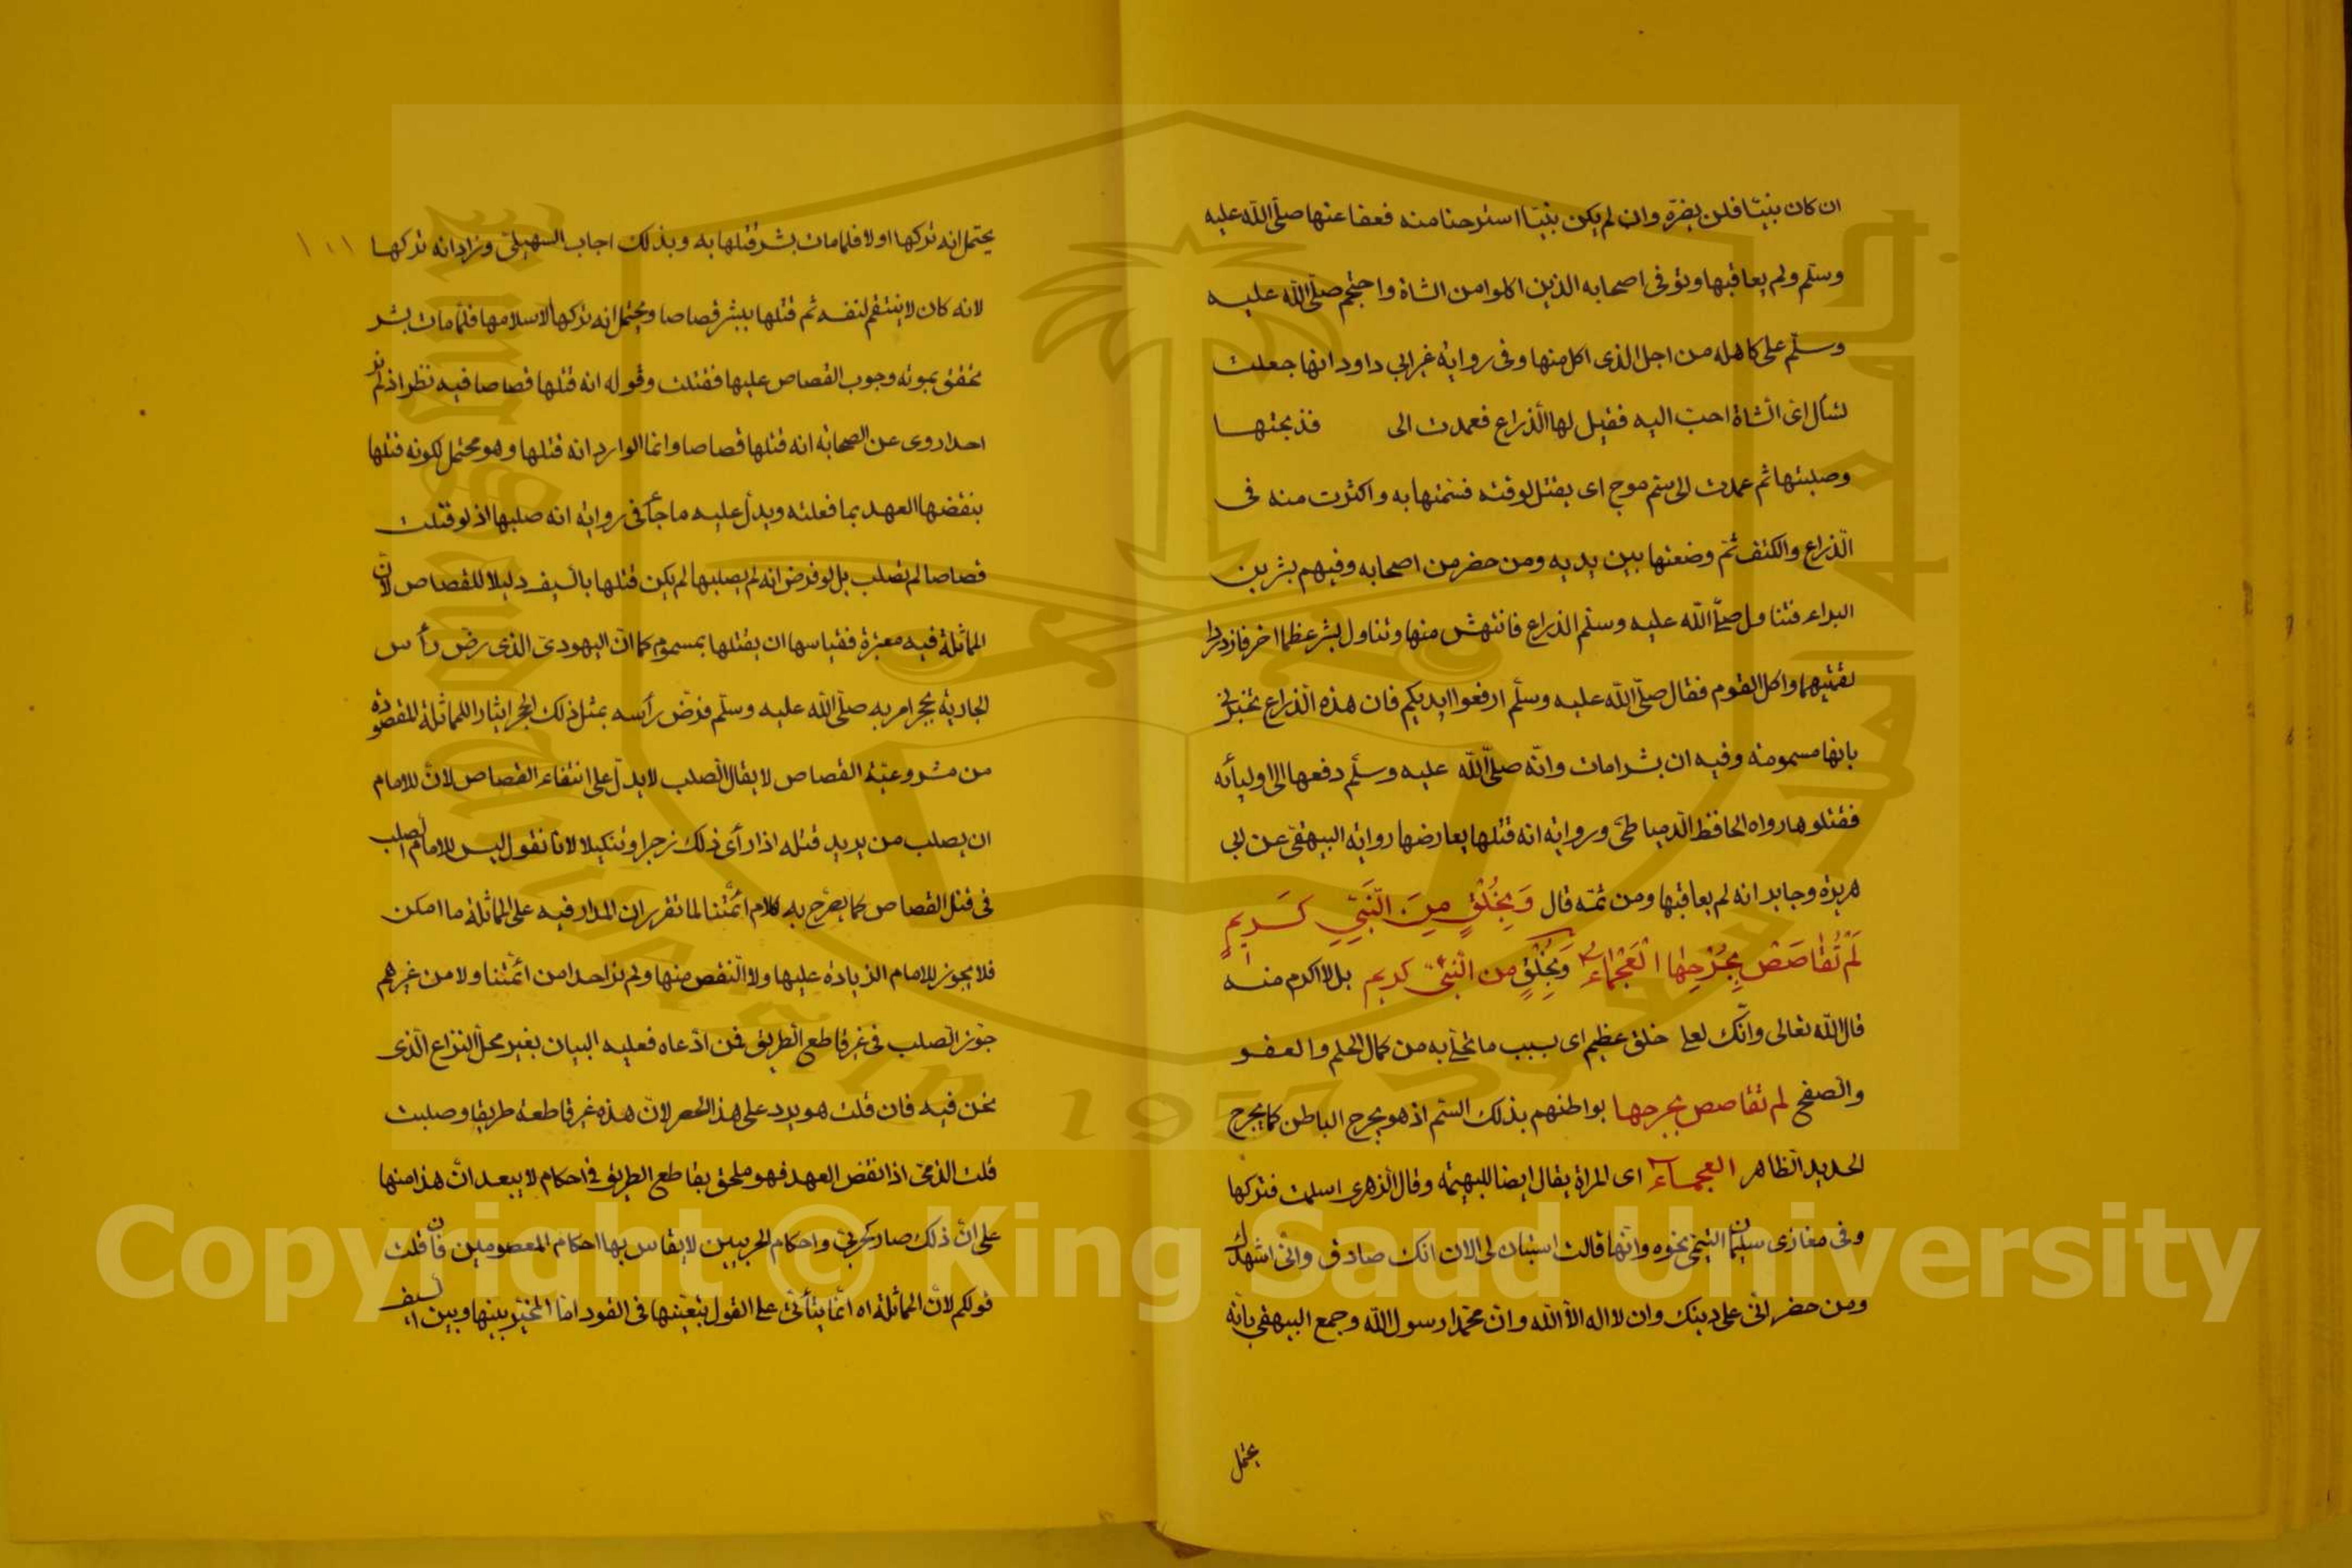 ان كان بنيتا فلن يضرّه وان لم يكن بنيتا استرحنا منه فعفا عنها صلّى الله عليه
وسلّم ولم يعاقبها وتوفى اصحابه الذين اكلوا من الشاة واحتجم صلّى الله عليه
وسلّم على كاهله من اجل الذى اكل منها وفى رواية غير ابي داود انها جعلت
تسأل اىّ الشاة احبّ اليه فقيل لها الذراع فعمدت الى فذبحتها
وصلبتها ثم عمدت الى سم موح اى يقتل لوقته فسمتها به واكثرت منه فى
الذراع والكتف ثمّ وضعتها بين يديه ومن حضر من اصحابه وفيهم بشر بن
البراء فتناول صلّى الله عليه وسلّم الذراع فانتهش منها وتناول بشر عظما اخر فازدردا
لقمتيهما واكل القوم فقال صلّى الله عليه وسلّم ارفعوا ايديكم فان هذه الذراع تخبرنى
بانها مسمومة وفيه ان بشرا مات وانّه صلّى الله عليه وسلّم دفعها الى اوليائه
فقتلوها رواه الحافظ الدمياطىّ ورواية انه قتلها يعارضها رواية البيهقى عن ابى
هريرة وجابر انه لم يعاقبها ومن ثمّه قال وَبِخُلْقٍ مِنَ النَّبِيِّ كَرِيمٍ
لَمْ تُقَاصَصْ بِجُرْحِهَا الْعَجْمَاءُ وَبِخُلْقٍ من النبىّ كريم بل لا اكرم منه
قال الله تعالى وانّك لعلى خلق عظيم اى بسبب ما تحلّى به من كمال الحلم والعفو
والصفح لم تقاصص بجرحها بواطنهم بذلك السّم اذ هو يجرح الباطن كما يجرح
الحديد الظاهر العجماء اى المراة يقال ايضا للبهيمة وقال الزهرى اسلمت فتركها
وفى مغازى سليمان التيمىّ نحوه وانّها قالت استبان لى الان انك صادق وانّى اشهدك
ومن حضر انّى على دينك وان لا اله الاّ الله وانّ محمّدا رسول الله وجمع البيهقى بانّه
يحتمل
١٠١
يحتمل انه تركها اولا فلما مات بشر قتلها به وبذلك اجاب السهيلىّ وزاد انه تركها
لانه كان لا ينتقم لنفسه ثم قتلها ببشر قصاصا ويحتمل انه تركها لاسلامها فلمّا مات بشر
تحقق بموته وجوب القصاص عليها فقتلت وقوله انه قتلها قصاصا فيه نظر اذ لم نر
احدا روى عن الصحابة انه قتلها قصاصا وانما الوارد انه قتلها وهو محتمل لكونه قتلها
بنقضها العهد بما فعلته ويدلّ عليه ما جأ فى رواية انه صلبها اذ لو قتلت
قصاصا لم تصلب بل لو فرض انه لم يصلبها لم يكن قتلها بالسيف دليلا للقصاص لانّ
المماثلة فيه معتبرة فقياسها ان يقتلها بمسموم كما انّ اليهودىّ الذى رضّ رأس
الجارية بحجر امر به صلّى الله عليه وسلّم فرضّ رأسه بمثل ذلك الحجر ايثارا للمماثلة المقصودة
من مشروعيّة القصاص لا يقال الصلب لا يدلّ على انتفاء القصاص لانّ للامام
ان يصلب من يريد قتله اذا رأى ذلك زجرا وتنكيلا لانا نقول ليس للامام الصلب
فى قتل القصاص كما يصرّح به كلام ائمّتنا لما تقرر ان المدار فيه على المماثلة ما امكن
فلا يجوز للامام الزيادة عليها ولا النقص منها ولم نر احدا من ائمّتنا ولا من غيرهم
جوّز الصلب فى غير قاطع الطريق فمن ادّعاه فعليه البيان بغير محل النزاع الّذى
نحن فيه فان قلت هو يرد على هذا الحصر لانّ هذه غير قاطعة طريقا وصلبت
قلت الذمىّ اذا نقض العهد فهو ملحق بقاطع الطريق فى احكام لا يبعد انّ هذا منها
على انّ ذلك صار كحربىّ واحكام الحربيين لا يقاس بها احكام المعصومين فان قلت
قولكم لانّ المماثلة اه انّما يتأتّى على القول بتعيّنها فى القود امّا المخيّر بينها وبين السيف